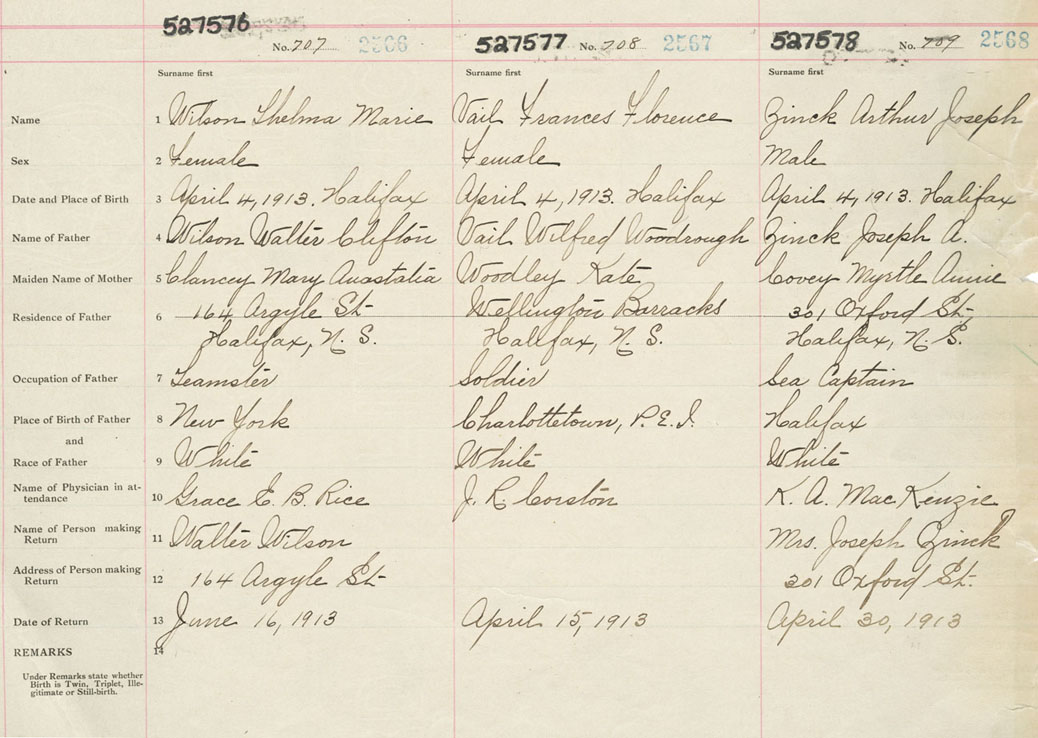 527576
No. 707 2566
527577 No. 708 2567
527578 No. 709 2568
Surname first Surname first Surname first
Name 1 Wilson Thelma Marie Vail Frances Florence Zinck Arthur Joseph
Sex 2 Female Female Male
Date and Place of Birth 3 April 4, 1913. Halifax April 4, 1913. Halifax April 4, 1913. Halifax
Name of Father 4 Wilson Walter Clifton Vail Wilfred Woodrough Zinck Joseph A.
Maiden Name of Mother 5 Clancey Mary Anastatia Woodley Kate Covey Myrtle Annie
Residence of Father 6 164 Argyle St Wellington Barracks 301 Oxford St.
Halifax, N. S. Halifax, N. S. Halifax, N. S.
Occupation of Father 7 Teamster Soldier Sea Captain
Place of Birth of Father 8 New York Charlottetown, P.E.I. Halifax
and
Race of Father 9 White White White
Name of Physician in at-
tendance 10 Grace E. B. Rice J. R. Corston K. A. MacKenzie
Name of Person making
Return 11 Walter Wilson Mrs. Joseph Zinck
Address of Person making
Return 12 164 Argyle St. 301 Oxford St.
Date of Return 13 June 16, 1913 April 15, 1913 April 30, 1913
REMARKS 14
Under Remarks state whether
Birth is Twin, Triplet, Ille-
gitimate or Still-birth.